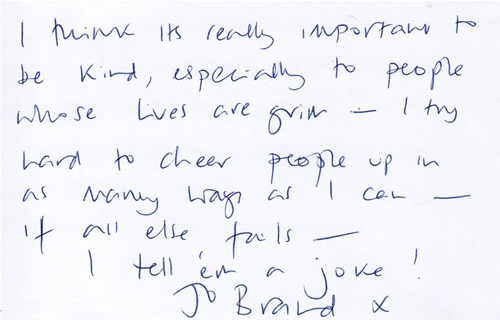 I think its really important to
be kind, especially to people
whose lives are grim – I try
hard to cheer people up in
as many ways as I can –
if all else fails –
I tell 'em a joke!
Jo Brand x